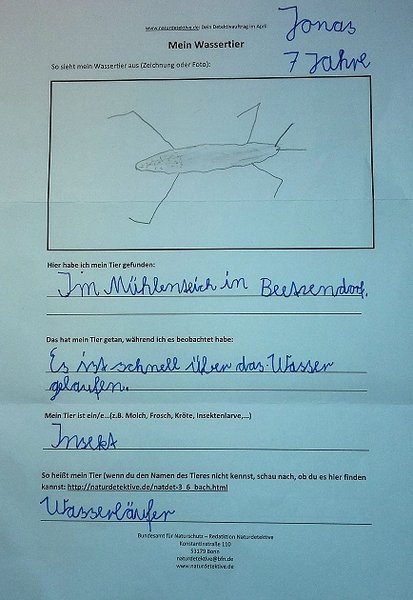 www.naturdetektive.de: Dein Detektivauftrag im April:
Jonas
7 Jahre
Mein Wassertier
So sieht mein Wassertier aus (Zeichnung oder Foto):
Hier habe ich mein Tier gefunden:
Im Mühlenteich in Beetzendorf.
Das hat mein Tier getan, während ich es beobachtet habe:
Es ist schnell über das Wasser
gelaufen.
Mein Tier ist ein/e...(z.B. Molch, Frosch, Kröte, Insektenlarve,...)
Insekt
So heißt mein Tier (wenn du den Namen des Tieres nicht kennst, schau nach, ob du es hier finden
kannst: http://naturdetektive.de/natdet-3_6_bach.html
Wasserläufer
Bundesamt für Naturschutz – Redaktion Naturdetektive
Konstantinstraße 110
53179 Bonn
naturdetektive@bfn.de
www.naturdetektive.de